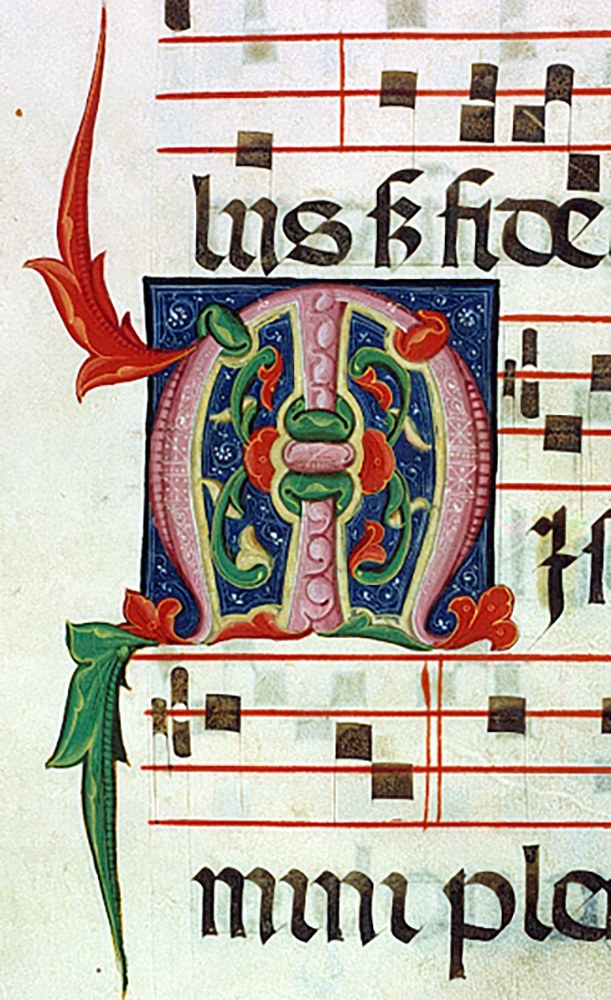 lus fide
M ⁊ f
mini ple